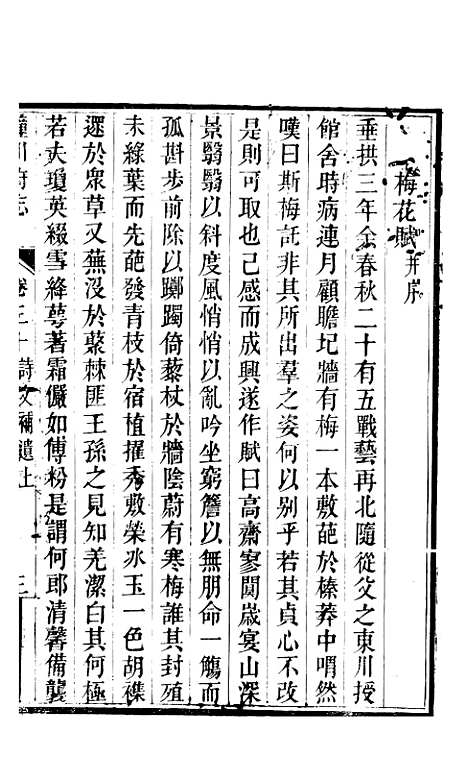 梅花賦并序
垂拱三年余春秋二十有五戰藝再北隨從父之東川授
館舍時病連月顧瞻圮牆有梅一本敷葩於榛莽中喟然
嘆曰斯梅託非其所出羣之姿何以别乎若其貞心不改
是則可取也已感而成興遂作賦曰高齋寥闃歲宴山深
景翳翳以斜度風悄悄以亂吟坐窮簷以無朋命一觴而
孤斟步前除以躑躅倚藜杖於牆陰蔚有寒梅誰其封殖
未綠葉而先葩發青枝於宿植擢秀敷榮氷玉一色胡襍
遝於衆草又蕪没於藂棘匪王孫之見知羌潔白其何極
若夫瓊英綴雪絳萼著霜儼如傅粉是謂何郎清馨備襲
潼川府志
卷三十詩文補遺上
三